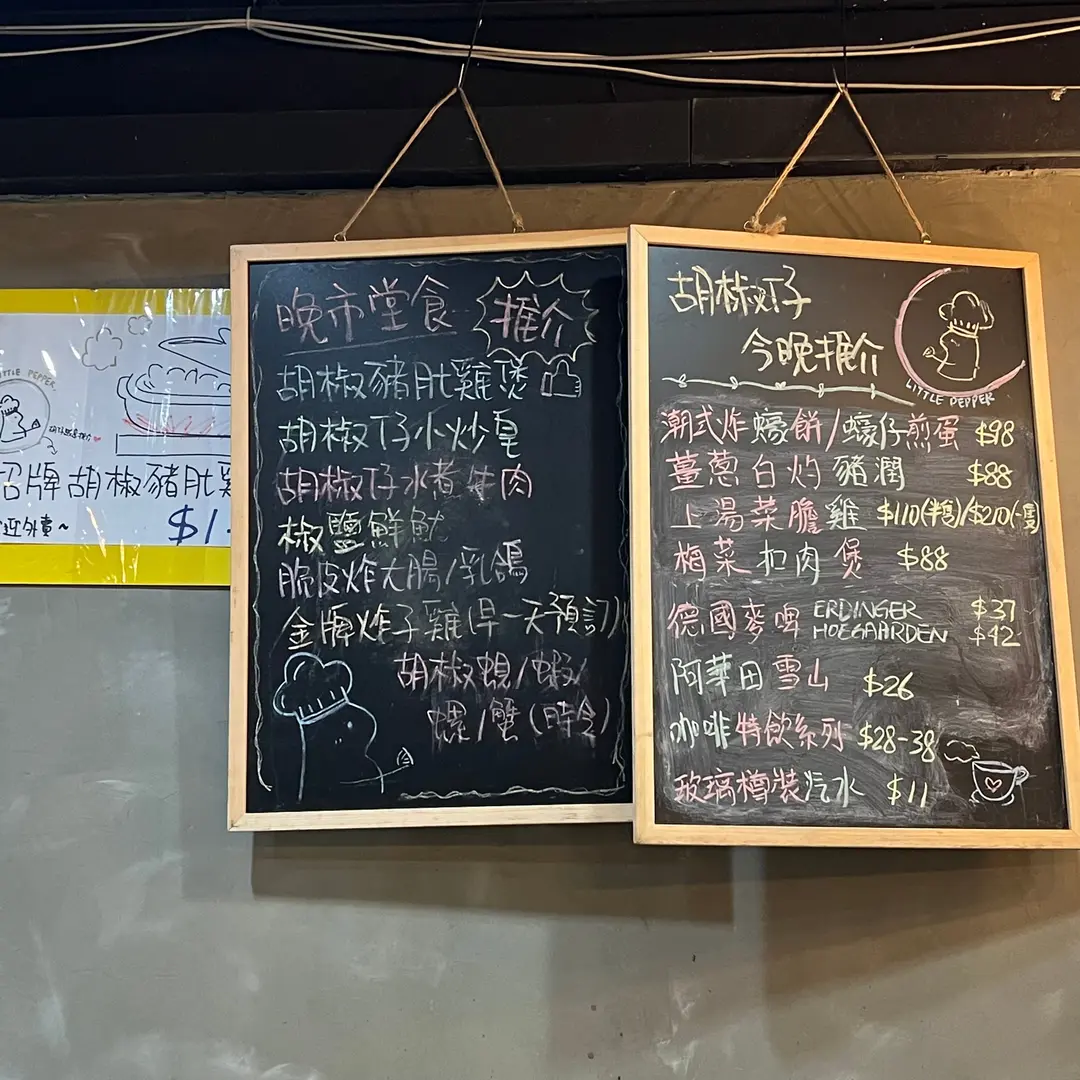 LITTLE PEPPER
招牌胡椒豬肚雞
迎外賣~
$1
晚市堂食
推介
胡椒豬肚雞煲
胡椒仔小炒皇
胡椒仔水煮牛肉
椒鹽鮮魷
脆皮炸大腸/乳鴿
金牌炸子雞(早一天預訂)
胡椒蜆/蝦/
螺/蟹(時令)
胡椒仔
今晚推介
LITTLE PEPPER
潮式炸蠔餅/蠔仔煎蛋 $98
薑蔥白灼豬潤 $88
上湯菜膽雞 $110(半隻)/$210(一隻)
梅菜扣肉煲 $88
德國麥啤 ERDINGER $37
HOEGAARDEN $42
阿華田雪山 $26
咖啡特飲系列 $28-38
玻璃樽裝汽水 $11